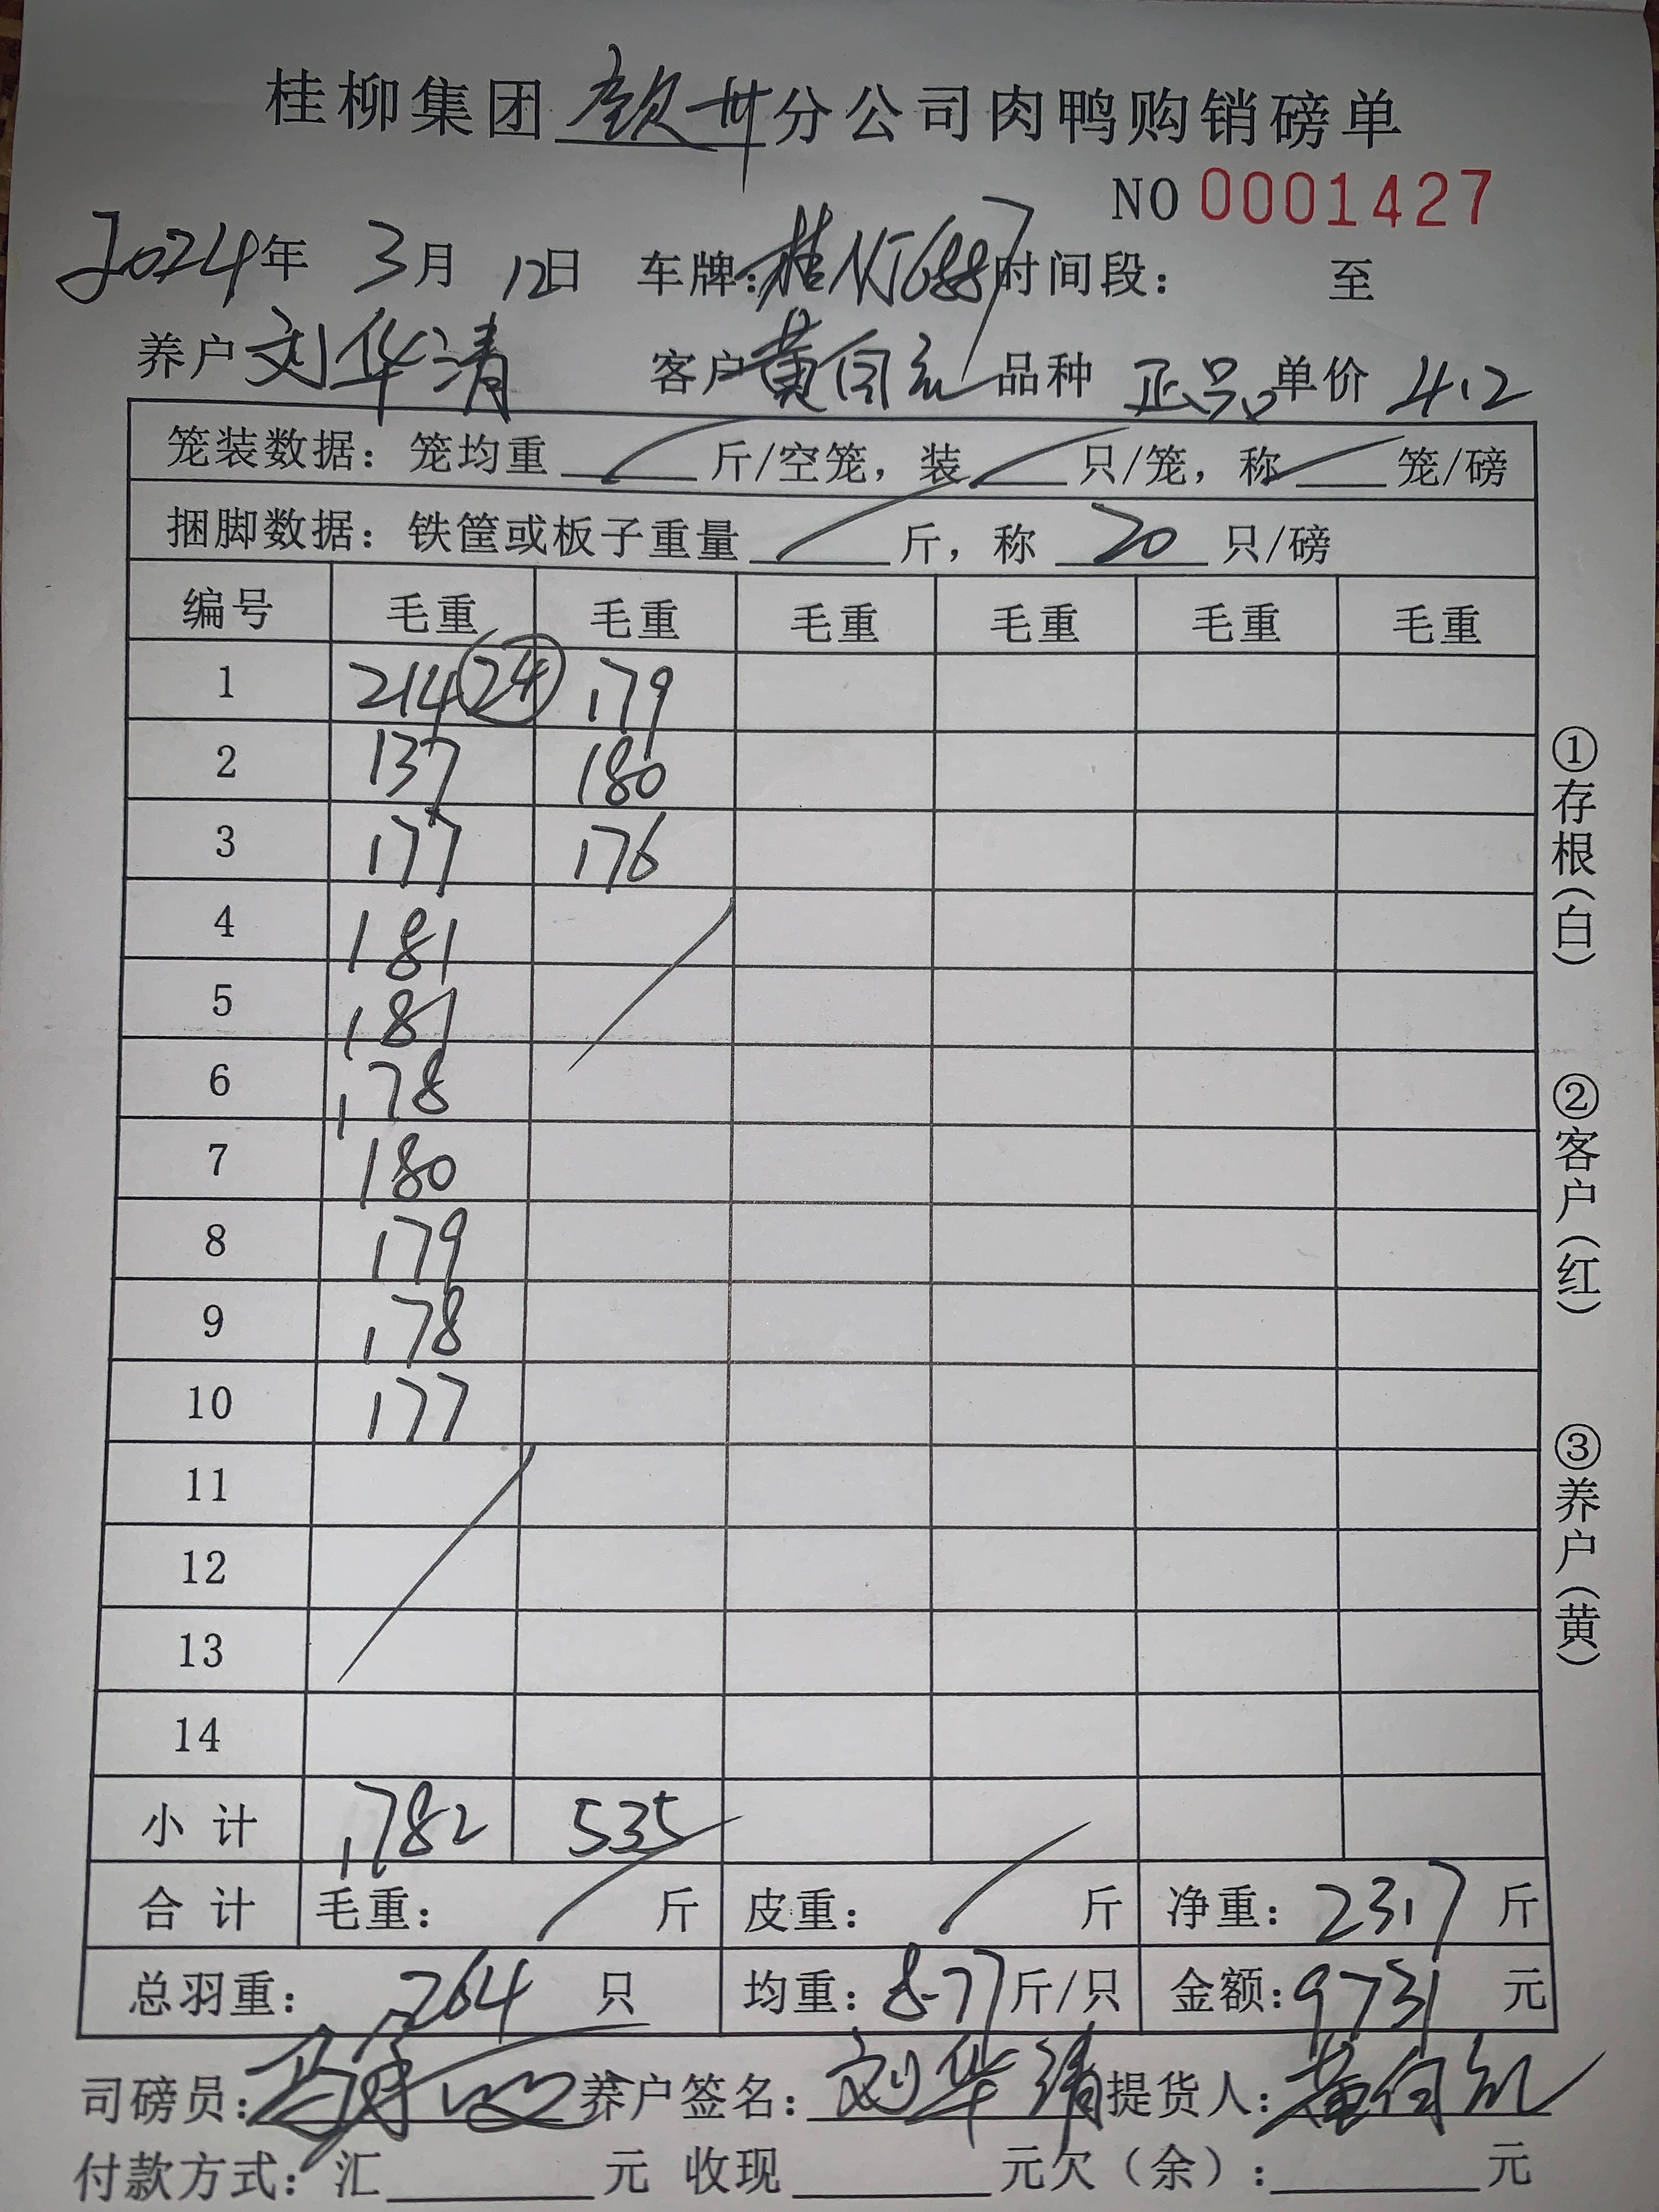 桂柳集团钦州分公司肉鸭购销磅单
NO 0001427
2024年 3月 12日 车牌: 时间段: 至
养户 刘华清 客户 黄 品种 正品 单价 4.2
笼装数据: 笼均重 / 斤/空笼, 装 / 只/笼, 称 / 笼/磅
捆脚数据: 铁筐或板子重量 / 斤, 称 20 只/磅
编号 毛重 毛重 毛重 毛重 毛重 毛重
1 214 24 179
2 137 180
3 177 176
4 181
5 181
6 178
7 180
8 179
9 178
10 177
11
12
13
14
小计 1782 535
合计 毛重: / 斤 皮重: / 斤 净重: 2317 斤
总羽重: 264 只 均重: 8.77 斤/只 金额: 9731 元
司磅员: 养户签名: 刘华清 提货人: 黄
付款方式: 汇 元 收现 元 欠(余): 元
①存根(白)
②客户(红)
③养户(黄)